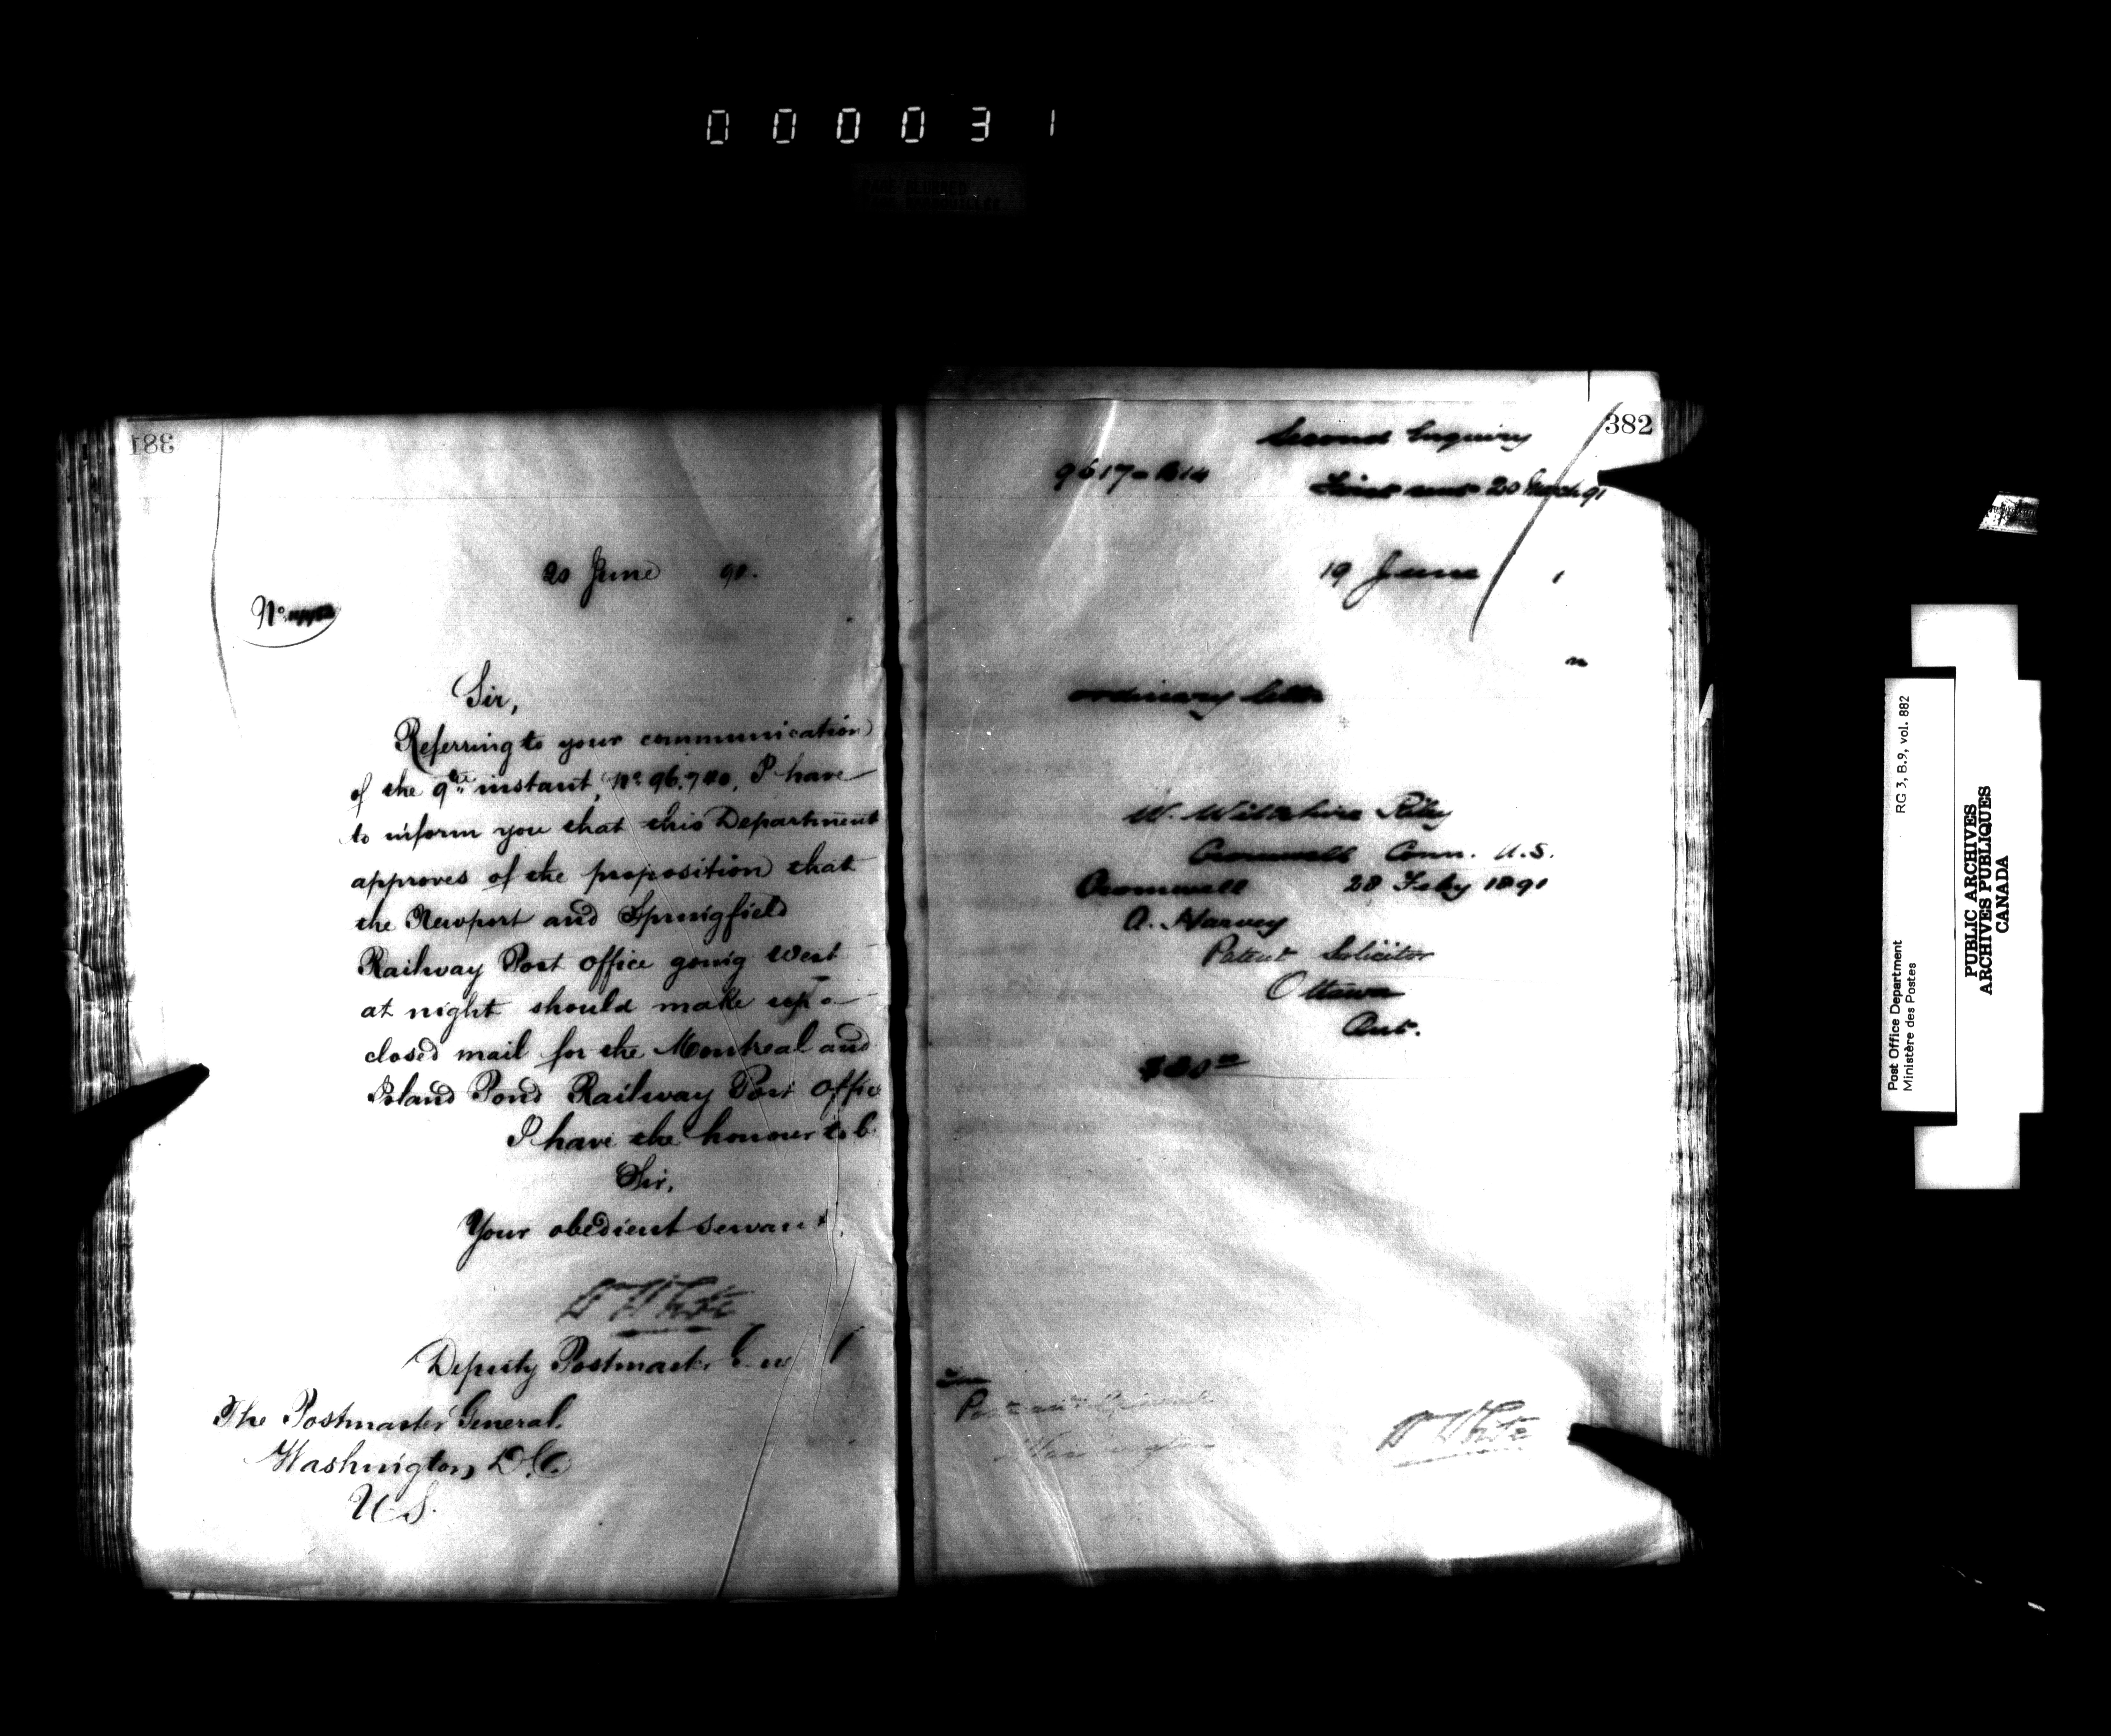 000031
PAGE BLURRED
381
20 June 91.
No.
Sir,
Referring to your communication
of the 9th instant, No. 96.740, I have
to inform you that this Department
approves of the proposition that
the Newport and Springfield
Railway Post Office going West
at night should make up a
closed mail for the Montreal and
Island Pond Railway Post Office
I have the honour to be
Sir,
Your obedient servant
W White
Deputy Postmaster
The Postmaster General.
Washington D.C.
U.S.
382
Second Enquiry
9617-B14
First sent 20 March 91
19 June 1
ordinary letter
W. Wiltshire Riley
Cromwell Conn. U.S.
Cromwell 28 Feby 1891
A. Harvey
Patent Solicitor
Ottawa
Ont.
The
Postmr General
Washington
W White
Post Office Department RG 3, B.9, vol. 882
Ministère des Postes
PUBLIC ARCHIVES
ARCHIVES PUBLIQUES
CANADA